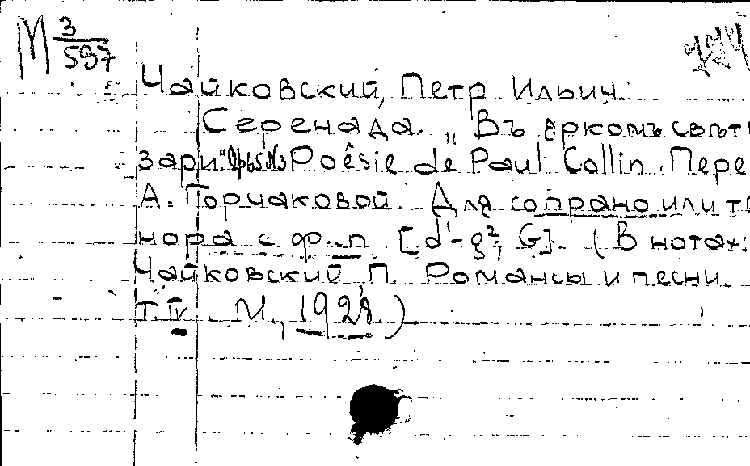 М 3/597
Чайковский, Петр Ильич.
Серенада. „Въ яркомъ свѣт
зари" Op. 65 №3 Poêsie de Paul Collin. Пере
А. Горчаковой. Для сопрано или те
нора с ф.-п. [d¹-g², G]. (В нотах:
Чайковский, П. Романсы и песни.
Т. IV. М., 1928)